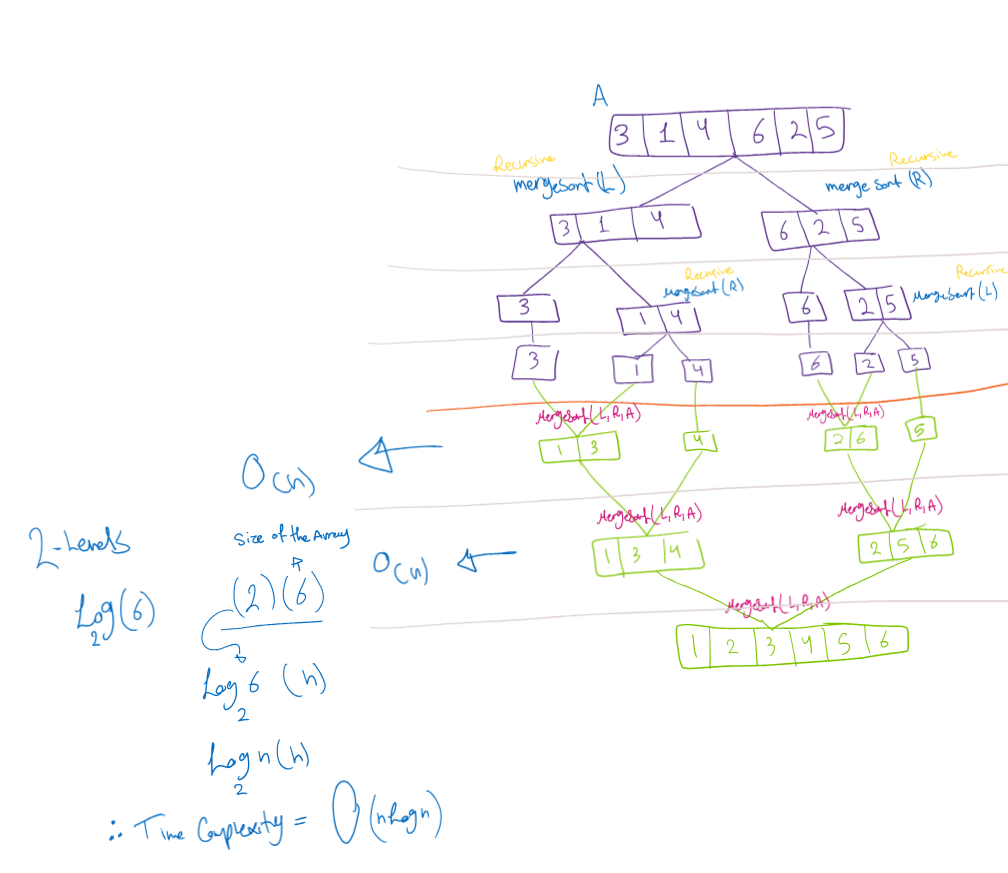 A
3 1 4 6 2 5
Recursive
mergesort(L)
Recursive
merge sort (R)
3 1 4
6 2 5
Recursive
MergeSort(R)
Recursive
MergeSort(L)
3
1 4
6
2 5
3
1
4
6
2
5
MergeSort(L,R,A)
MergeSort(L,R,A)
1 3
4
2 6
5
O(n)
MergeSort(L,R,A)
MergeSort(L,R,A)
2-Levels
Size of the Array
O(n)
1 3 4
2 5 6
Log₂(6)
(2)(6)
MergeSort(L,R,A)
1 2 3 4 5 6
Log₂6 (n)
Log₂n(n)
∴ Time Complexity = O(nLogn)